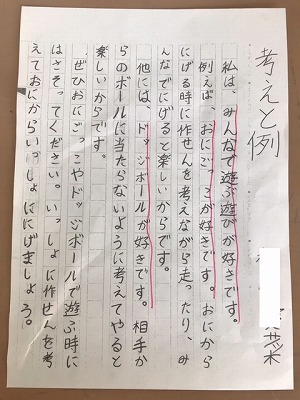 考えと例
私は、みんなで遊ぶ遊びが好きです。
例えば、おにごっこが好きです。おにから
にげる時に作せんを考えながら走ったり、み
んなでにげると楽しいからです。
他には、ドッジボールが好きです。相手か
らのボールに当たらないように考えてやると
楽しいからです。
ぜひおにごっこやドッジボールで遊ぶ時に
はさそってください。いっしょに作せんを考
えておにからいっしょににげましょう。